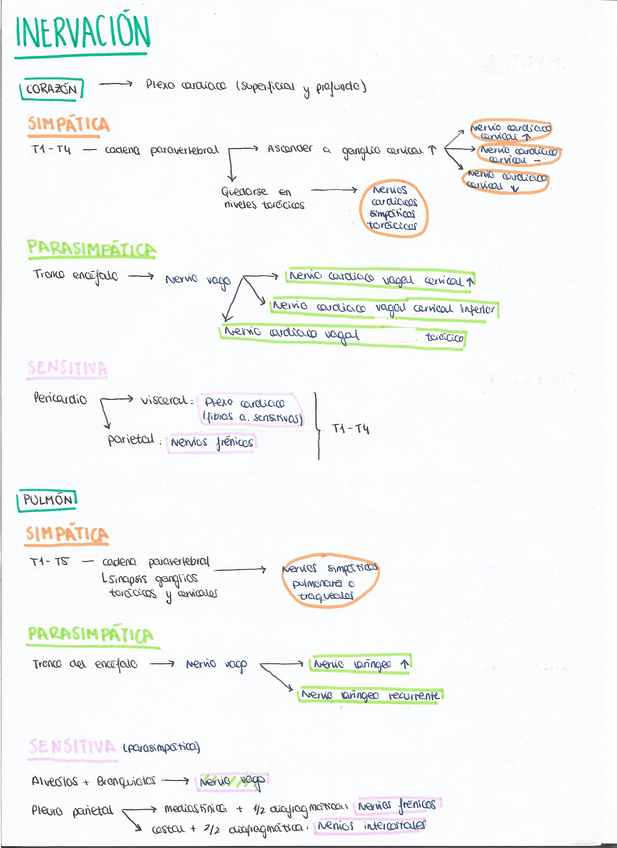 INERVACIÓN
CORAZÓN → Plexo cardiaco (superficial y profundo)
SIMPÁTICA
T1-T4 — cadena paravertebral → Ascender a ganglio cervical ↑ → Nervio cardiaco cervical ↑
Nervio cardiaco cervical –
Nervio cardiaco cervical ↓
Quedarse en niveles torácicos → Nervios cardiacos simpáticos torácicos
PARASIMPÁTICA
Tronco encéfalo → Nervio vago → Nervio cardiaco vagal cervical ↑
Nervio cardiaco vagal cervical inferior
Nervio cardiaco vagal torácico
SENSITIVA
Pericardio → visceral: Plexo cardiaco (fibras a. sensitivas)
parietal: Nervios frénicos
T1-T4
PULMÓN
SIMPÁTICA
T1-T5 — cadena paravertebral → Nervios simpáticos
sinapsis ganglios pulmonares o
torácicos y cervicales traqueales
PARASIMPÁTICA
Tronco del encéfalo → Nervio vago → Nervio laríngeo ↑
Nervio laríngeo recurrente
SENSITIVA (parasimpática)
Alveolos + Bronquiolos → Nervio vago
Pleura parietal → mediastínica + 1/2 diafragmática: Nervios frénicos
costal + 2/2 diafragmática: Nervios intercostales